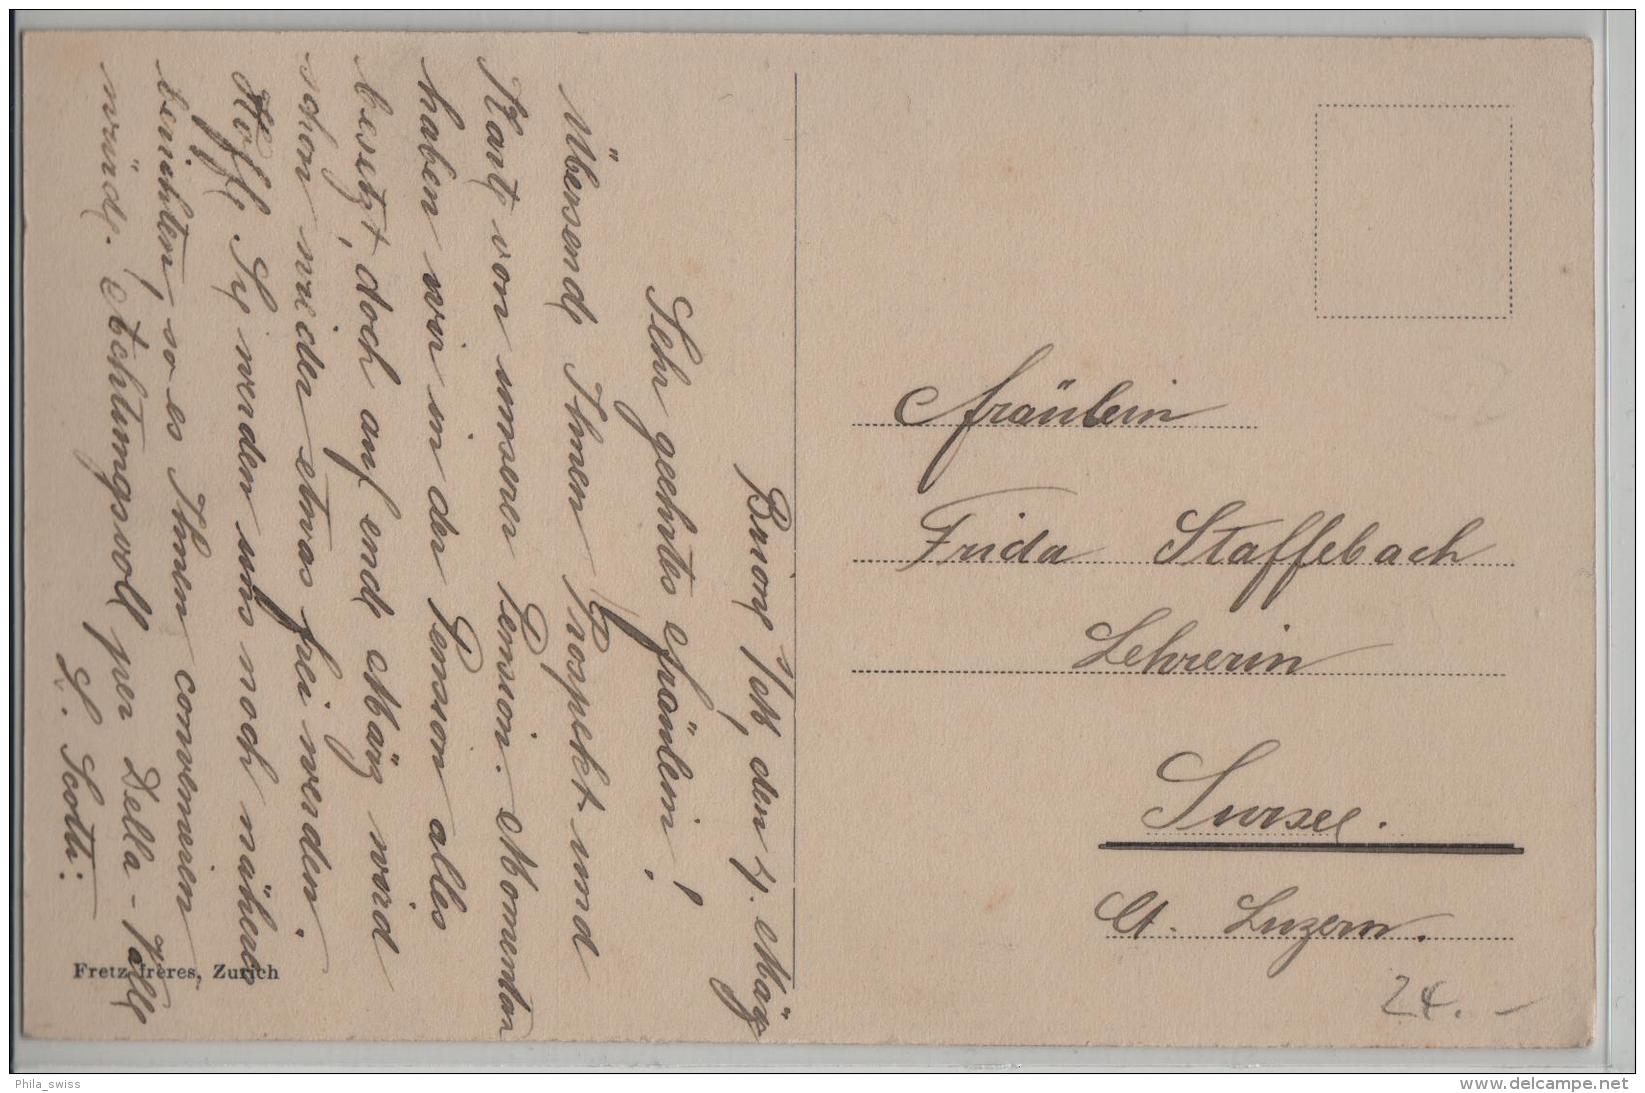 Brione s/M, den 4. März
Sehr geehrtes Fräulein!
Übersende Ihnen Prospekt und
Karte von unserer Pension. Momentan
haben wir in der Pension alles
besetzt, doch auf ende März wird
schon wieder etwas frei werden.
Hoffe Sie werden uns noch nähere
berichten, so es Ihnen convenieren
würde. Achtungsvoll per Della-Valle
S. Scotti:
Fretz frères, Zurich
Fräulein
Frida Staffelbach
Lehrerin
Sursee.
Ct. Luzern.
24.-
Phila_swiss
www.delcampe.net